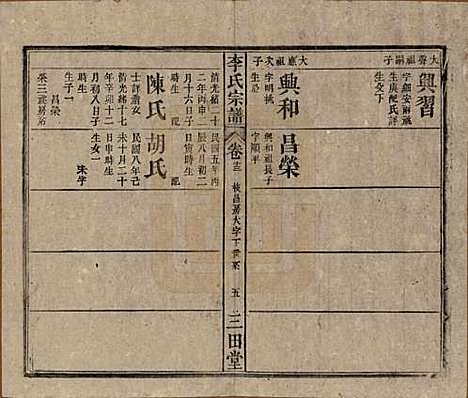 大聲祖嗣子
興習
字顯安兩承
生庚配氏詳
生父下
大應祖次子
興和
字明桃
生忌
昌榮
興和祖長子
字順平
李氏宗譜
卷十三
枝昌房大字下世系
五
三田堂
清光緒二十
二年丙申二
月十六日子
時生
配
民國五年丙
辰八月初二
日寅時生
配
陳氏
士詳翁女
清光緒十七
年辛卯十二
月初八日子
時生
生子一
昌榮
葬三
胡氏
民國八年己
未十月二十
日申時生
生女一
朱字